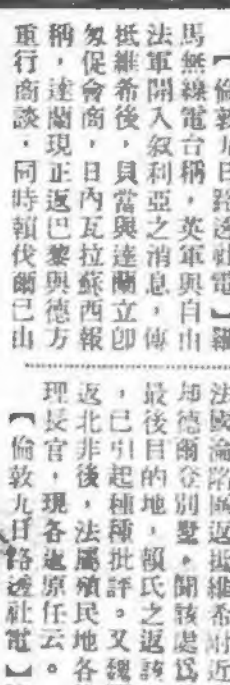 【倫敦九日路透社電】羅
馬無線電台稱，英軍與自由
法軍開入叙利亞之消息，傳
抵維希後，貝當與達蘭立卽
匆促會商，日內瓦拉蘇西報
稱，達蘭現正返巴黎與德方
重行商談，同時賴伐爾已由
法國淪陷區返抵維希附近
却德爾登別墅，聞該處爲
最後目的地，賴氏之返該
，已引起種種批評。又魏
返北非後，法屬殖民地各
理長官，現各返原任云。
【倫敦九日路透社電】